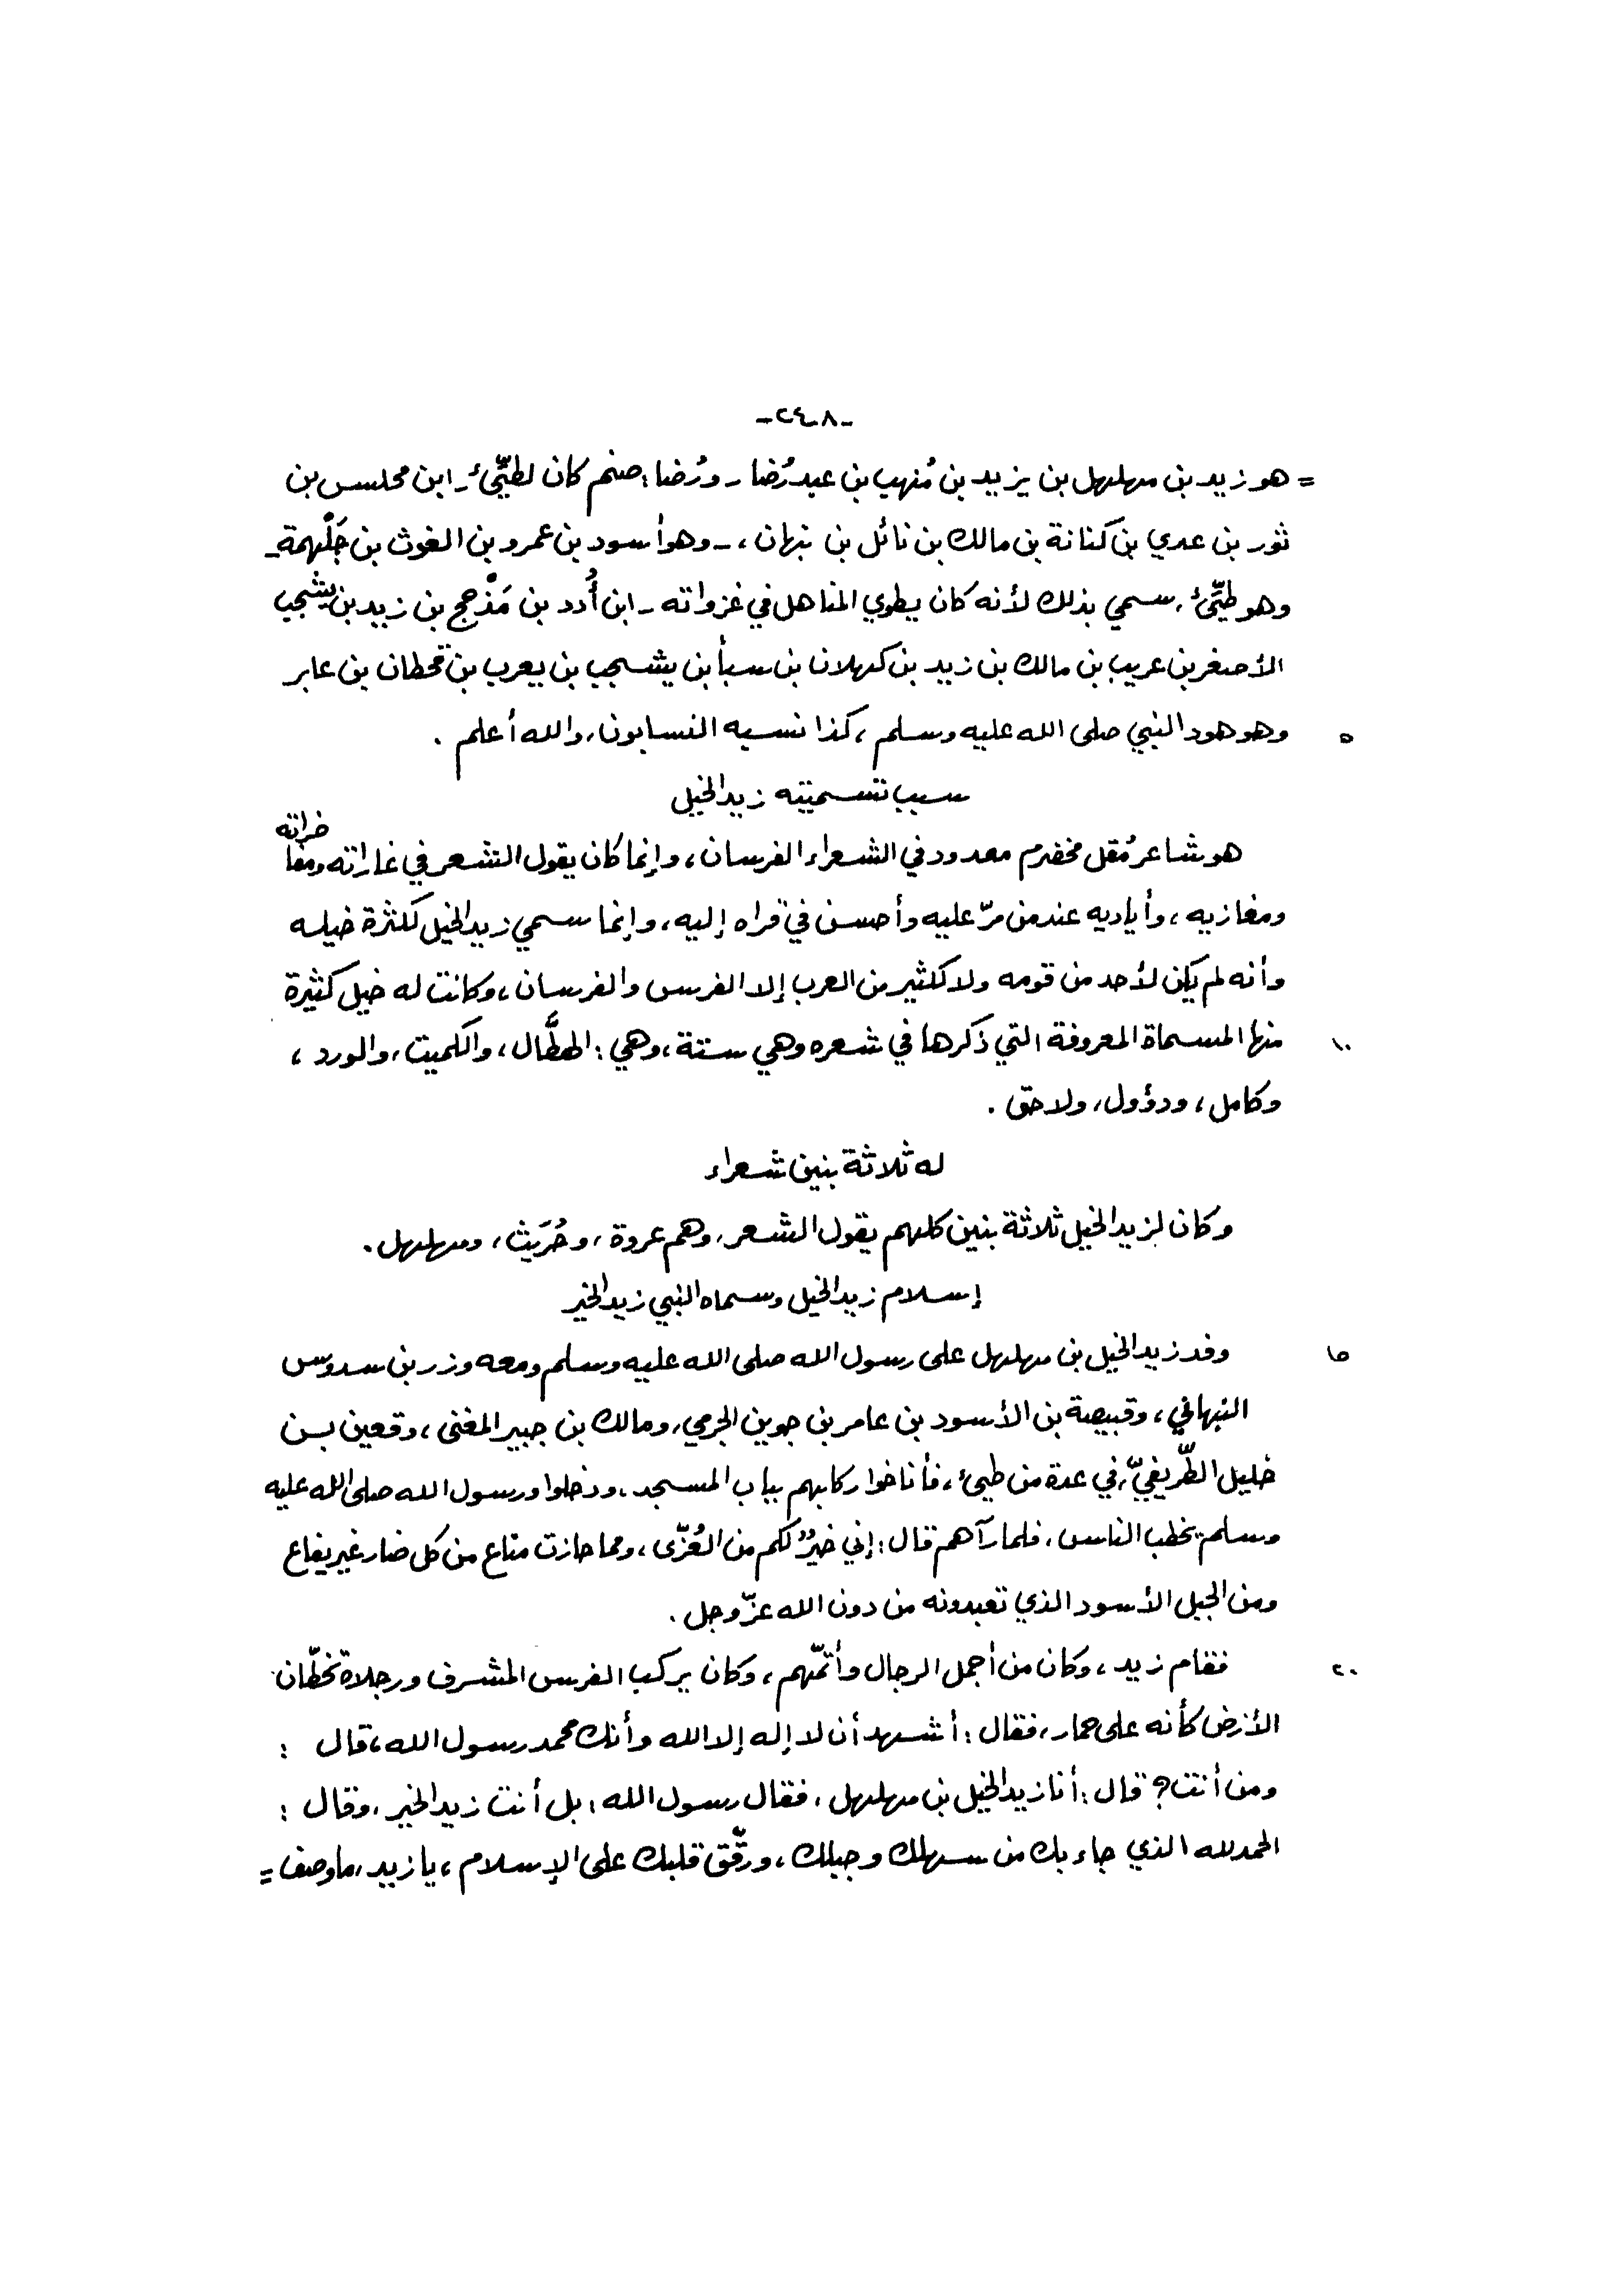 -٢٤٠٨-
= هو زيد بن مهلهل بن يزيد بن مُنهب بن عبد رُضا - ورُضا: صنم كان لطيِّئ - ابن محلس بن
ثور بن عدي بن كنانة بن مالك بن نائل بن نبهان ، - وهو أسود بن عمرو بن الغوث بن جَلْهمة -
وهو طيِّئ ، سمي بذلك لأنه كان يطوي المناهل في غزواته - ابن أُدد بن مَذْحج بن زيد بن يشجب
الأصغر بن عريب بن مالك بن زيد بن كهلان بن سبأ بن يشجب بن يعرب بن قحطان بن عابر
٥ وهو هود النبي صلى الله عليه وسلم ، كذا نسبه النسابون ، والله أعلم .
سبب تسميته زيد الخيل
هو شاعر مُقل مخضرم معدود في الشعراء الفرسان ، وإنما كان يقول الشعر في غاراته ومفاخراته
ومغازيه ، وأياديه عند من مرّ عليه وأحسن في قراه إليه ، وإنما سمي زيد الخيل لكثرة خيله
وأنه لم يكن لأحد من قومه ولا لكثير من العرب إلا الفرس والفرسان ، وكانت له خيل كثيرة
١٠ منها المسماة المعروفة التي ذكرها في شعره وهي ستة ، وهي : الهطَّال ، والكميت ، والورد ،
وكامل ، ودؤول ، ولاحق .
له ثلاثة بنين شعراء
وكان لزيد الخيل ثلاثة بنين كلهم يقول الشعر ، وهم عروة ، وحُرَيث ، ومهلهل .
إسلام زيد الخيل وسماه النبي زيد الخير
١٥ وفد زيد الخيل بن مهلهل على رسول الله صلى الله عليه وسلم ومعه وزر بن سدوس
النبهاني ، وقبيصة بن الأسود بن عامر بن جوين الجرمي ، ومالك بن جبير المغنى ، وقعين بن
خليل الطّريفيّ ، في عدة من طيئ ، فأناخوا ركابهم بباب المسجد ، ودخلوا ورسول الله صلى الله عليه
وسلم يخطب الناس ، فلما رآهم قال : إني خيرٌ لكم من العُزّى ، ومما حازت مناع من كل ضار غير يفاع
ومن الجبل الأسود الذي تعبدونه من دون الله عزّ وجل .
٢٠ فقام زيد ، وكان من أجمل الرجال وأتمّهم ، وكان يركب الفرس المشرف ورجلاة تخطّان
الأرض كأنه على حمار ، فقال : أشهد أن لا إله إلا الله وأنك محمد رسول الله ، قال :
ومن أنت ؟ قال : أنا زيد الخيل بن مهلهل ، فقال رسول الله : بل أنت زيد الخير ، وقال :
الحمد لله الذي جاء بك من سهلك وجبلك ، ورقّق قلبك على الإسلام ، يا زيد ، ما وصف =